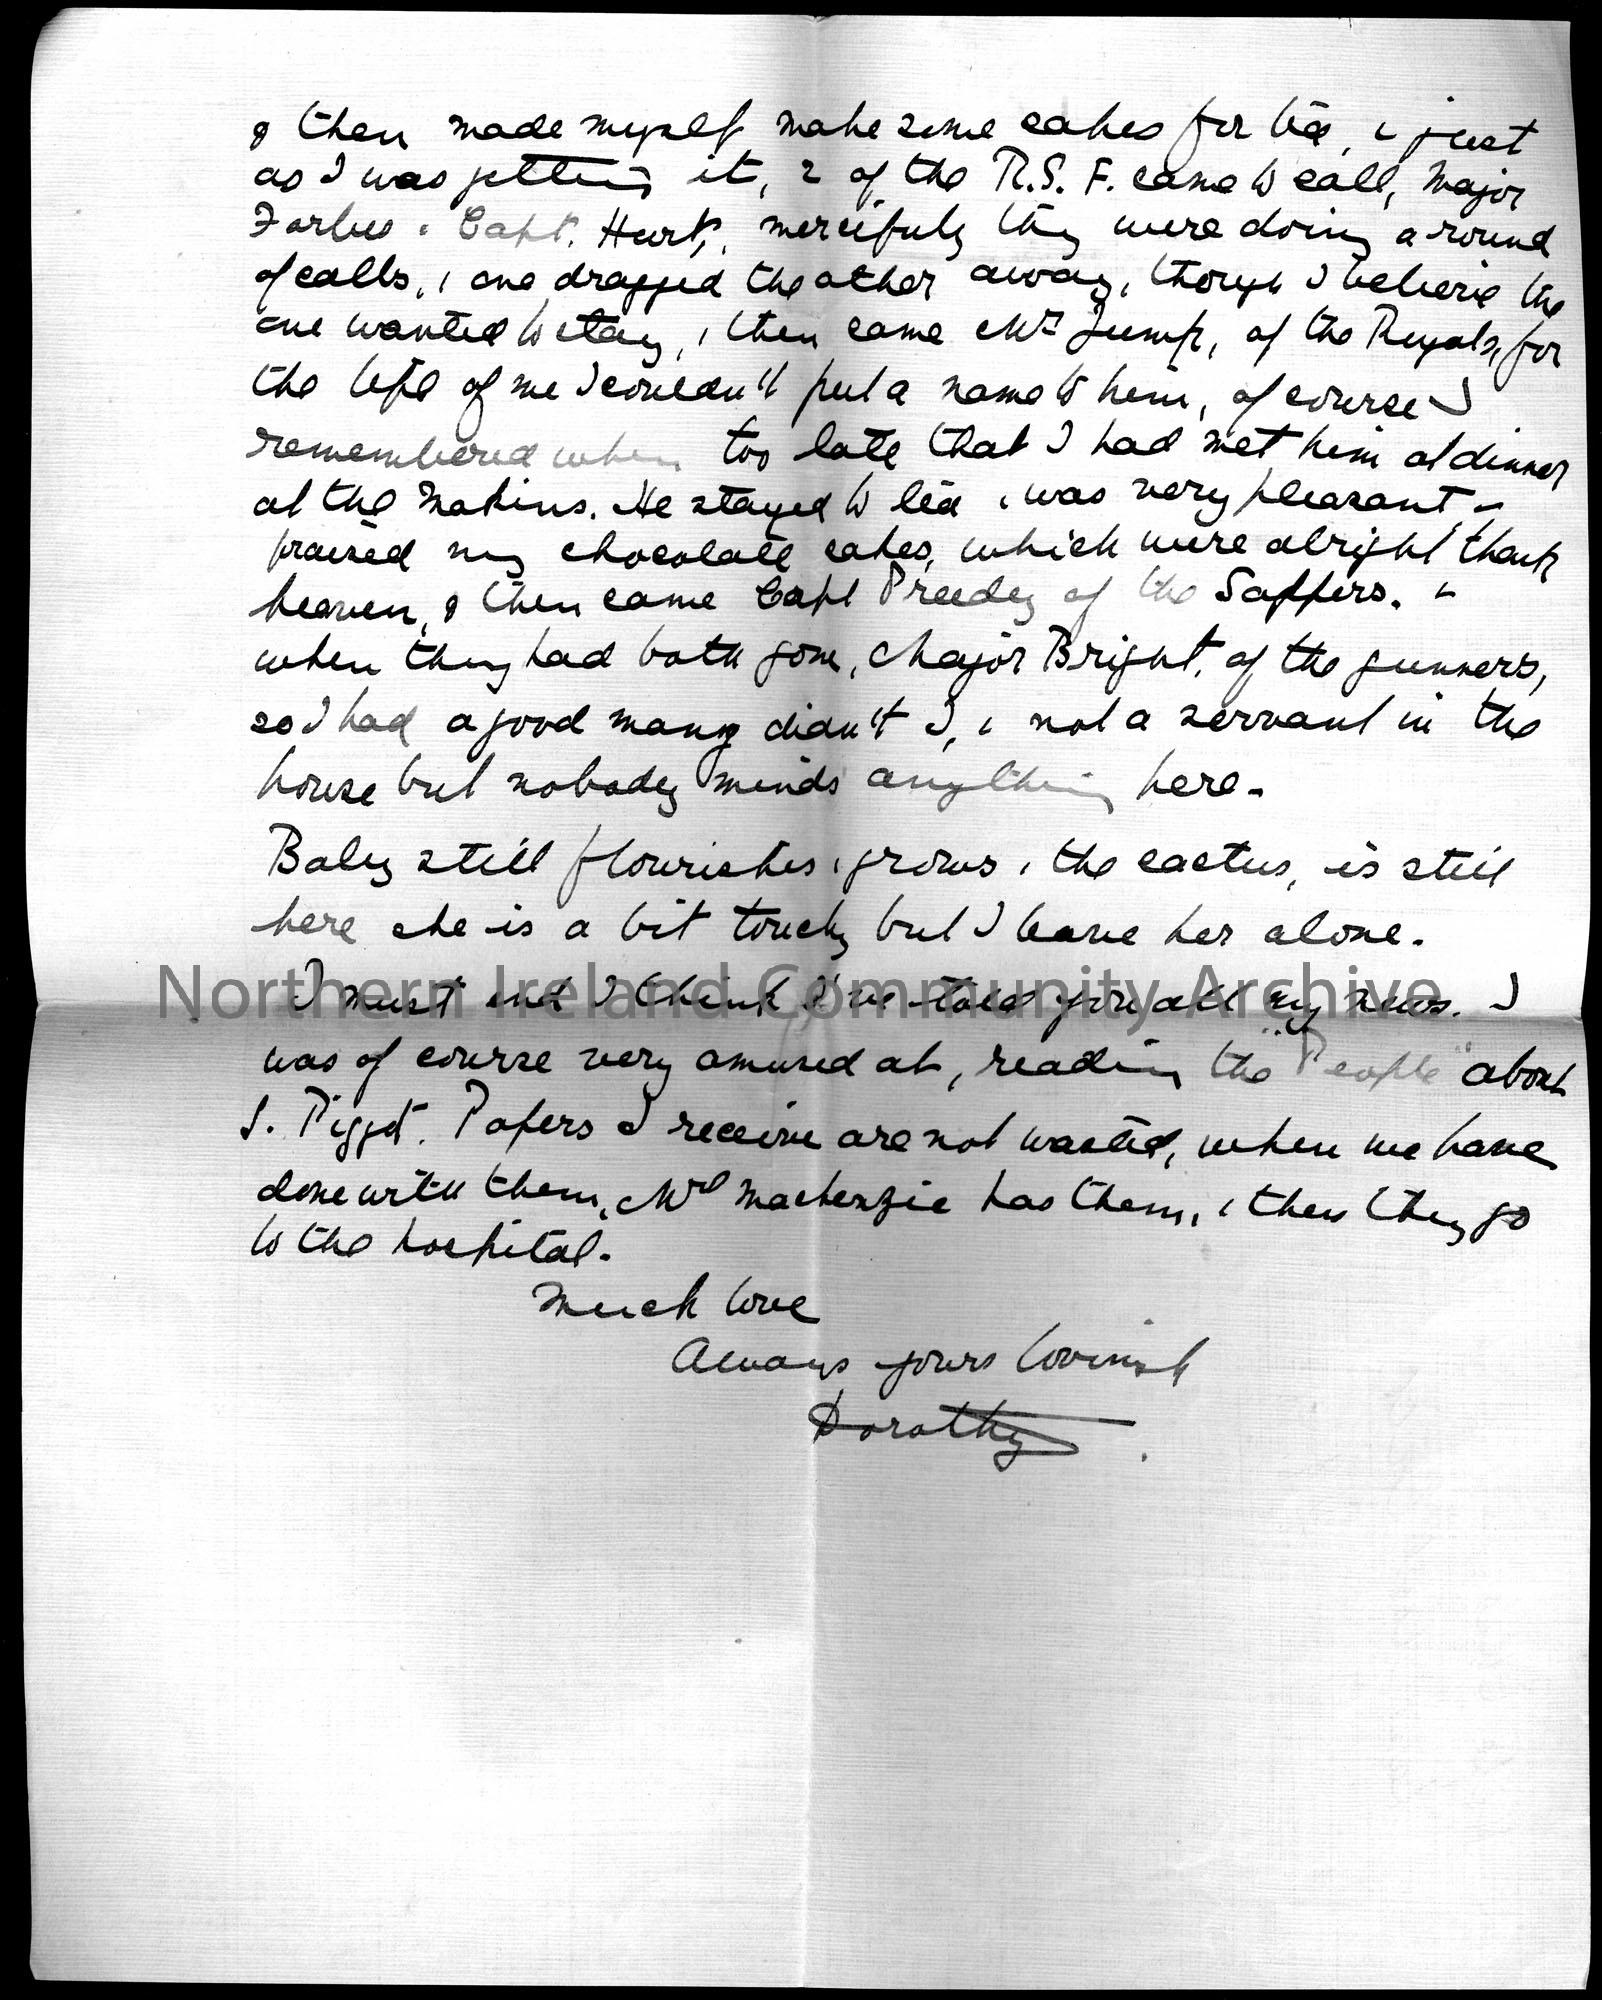 & then made myself make some cakes for tea, & just
as I was getting it, 2 of the R.S.F. came to call, Major
Forbes & Capt. Hurt, mercifuly they were doing a round
of calls, & one dragged the other away, though I believe the
one wanted to stay, & then came Mr Jump, of the Royals, for
the life of me I couldn't put a name to him, of course I
remembered when too late that I had met him at dinner
at the Makins. He stayed to tea & was very pleasant &
praised my chocolate cakes, which were alright thank
heaven, & then came Capt Preedy of the Saffers. &
when they had both gone, Major Bright, of the gunners,
so I had a good many didn't I, & not a servant in the
house but nobody minds anything here.
Baby still flourishes & grows & the cactus, is still
here she is a bit touchy but I leave her alone.
Northern Ireland Community Archive
I must end I think I've told you all my news. I
was of course very amused at, reading the "People" about
S. Piggot. Papers I receive are not wasted, when we have
done with them, Mrs Mackenzie has them, & then they go
to the hospital.
Much love
Always yours lovingly
Dorothy